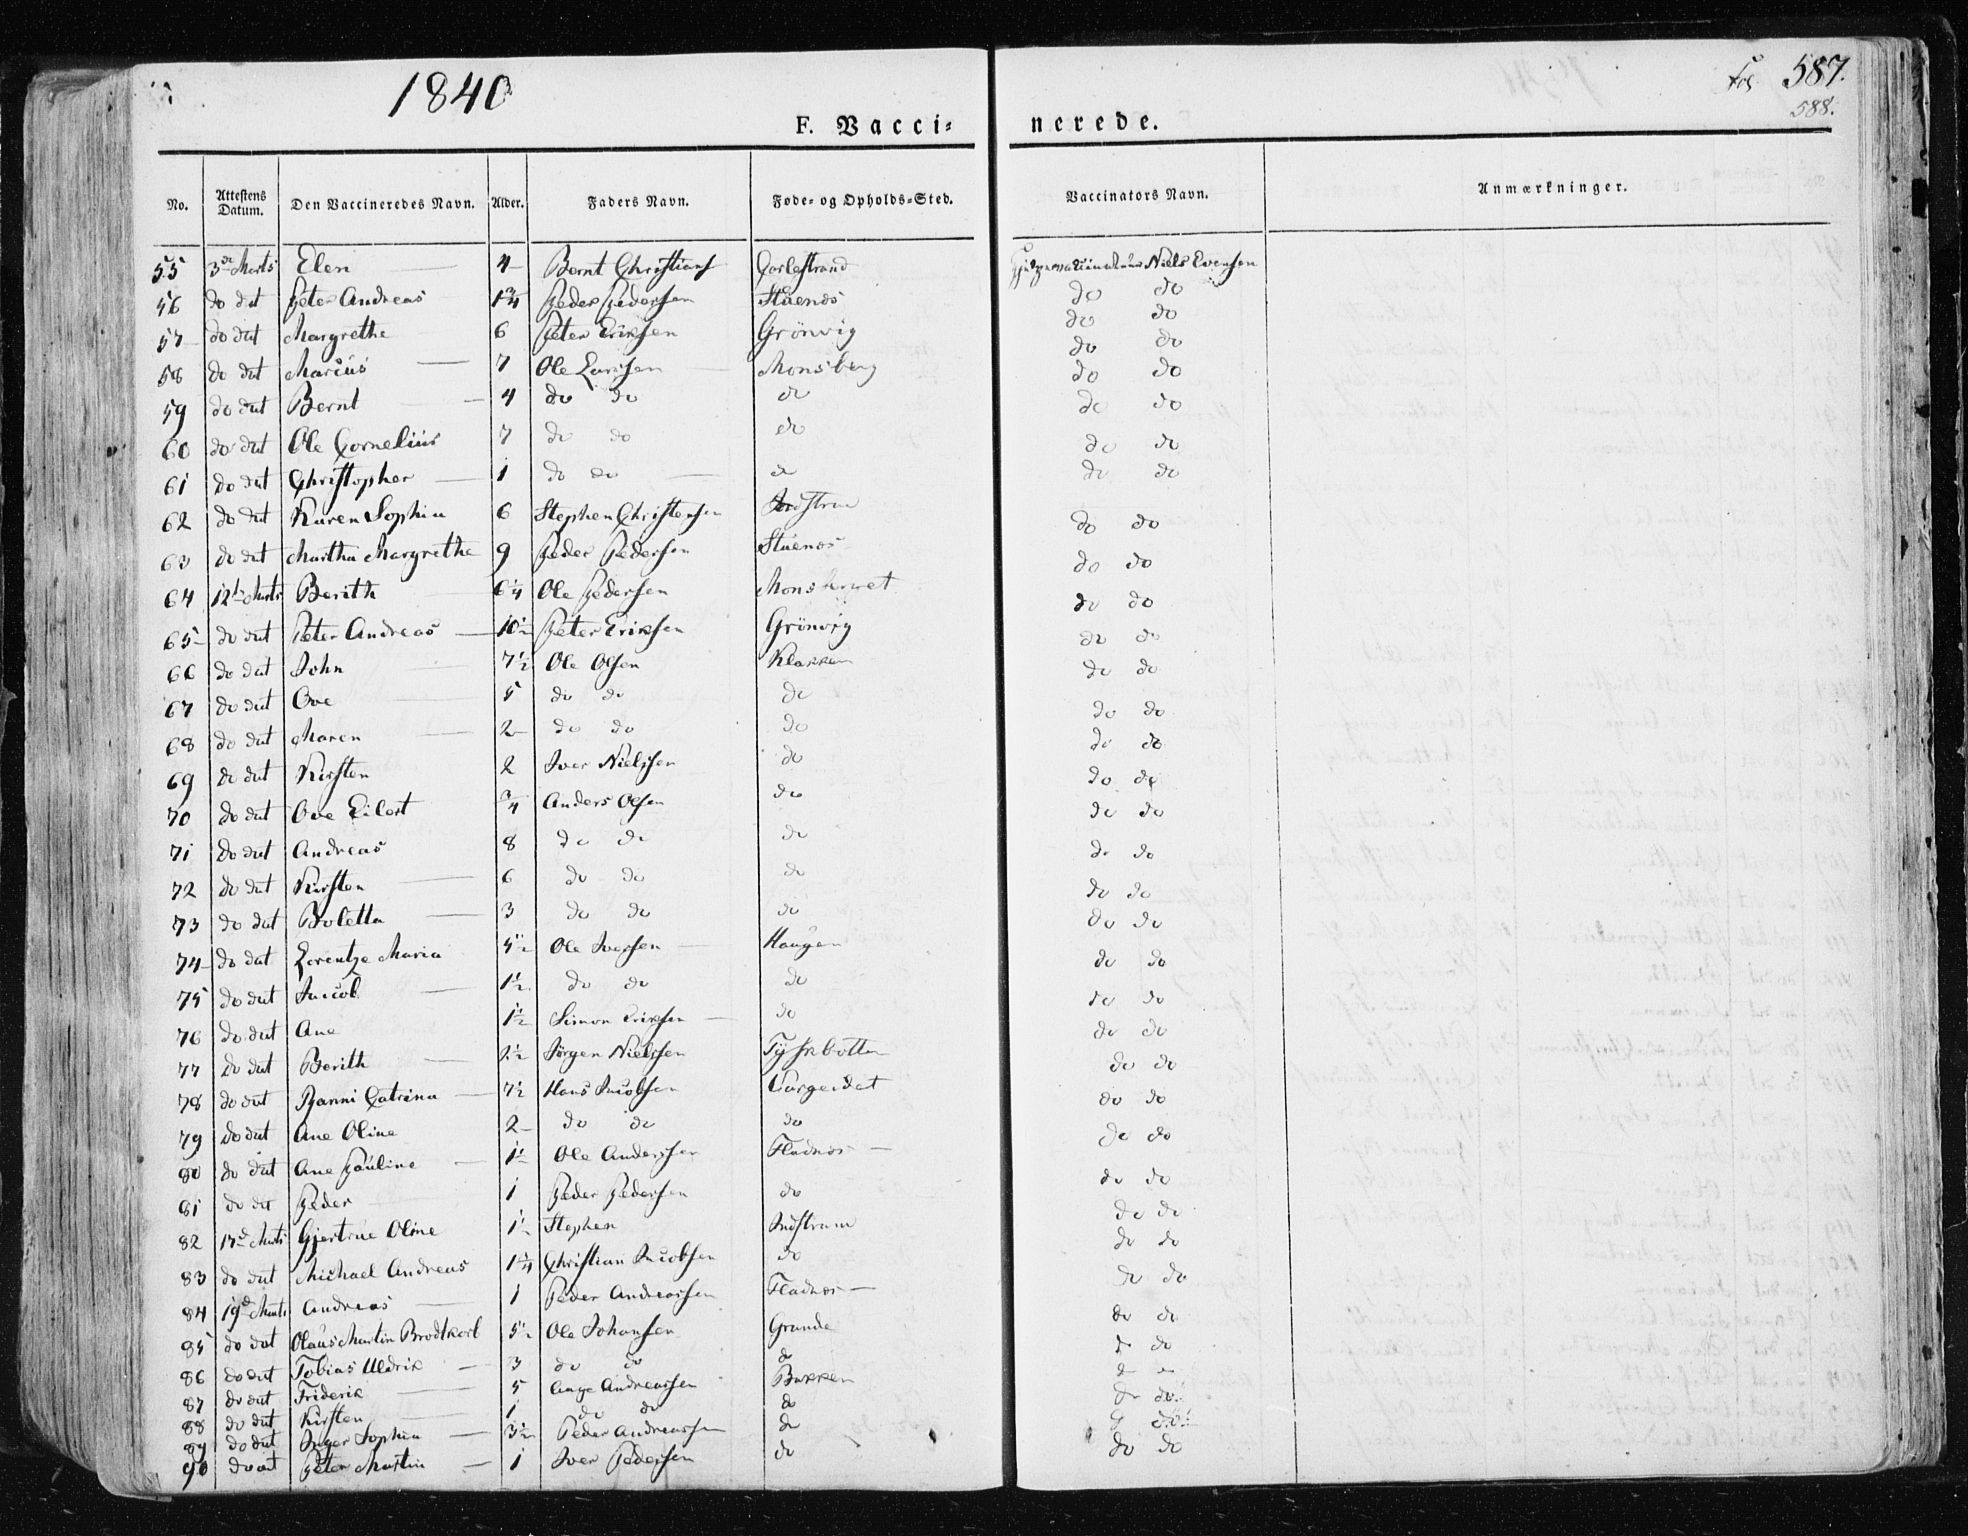 1840
Fol 587.
588.
F. Vacci-nerede.
No. Attestens Datum. Den Vaccineredes Navn. Alder. Faders Navn. Føde- og Opholds-Sted. Vaccinators Navn. Anmærkninger.
55 3de Marts Elen 4 Bernt Christians Carlestrand Niels Evensen
56 do dat Peter Andreas 1 3/4 Peder Pedersen Stuenes do do
57 do dat Margrethe 6 Peter Eriksen Grönvig do do
58 do dat Marius 7 Ole Larssen Monsberg do do
59 do dat Bernt 4 do do do do do
60 do dat Ole Cornelius 7 do do do do do
61 do dat Christopher 1 do do do do do
62 do dat Karen Sophia 6 Stephen Christensen do do
63 do dat Martha Margretha 9 Peder Pedersen Stuenes do do
64 12te Marts Berith 6 1/4 Ole Pedersen Monsberget do do
65 do dat Peter Andreas 10 1/2 Peter Eriksen Grönvig do do
66 do dat John 7 1/2 Ole Olsen Klakken do do
67 do dat Ove 5 do do do do do
68 do dat Maren 2 do do do do do
69 do dat Kirsten 2 Iver Nielssen do do do
70 do dat Ove Eilert 3/4 Anders Olsen do do do
71 do dat Andreas 8 do do do do do
72 do dat Kirsten 6 do do do do do
73 do dat Boletta 3 do do do do do
74 do dat Lorentze Maria 5 1/2 Ole Iversen Haugen do do
75 do dat Jacob 1 1/2 do do do do do
76 do dat Ane 1 1/2 Simon Eriksen do do do
77 do dat Berith 2 1/2 Jörgen Nielssen do do
78 do dat Catrina 7 1/2 Hans Jacobsen do do
79 do dat Ane Oline 2 do do do do do
80 do dat Ane Pauline 1 1/2 Ole Anderssen Fladnes do do
81 do dat Peder 1 Peder Pedersen do do do
82 Marts Gjertrue Oline 1 1/2 Stephen do do
83 do dat Michael Andreas 1 1/4 Christian Jacobsen do do do
84 19de Marts Andreas 1 Peder Andreassen Fladnes do do
85 do dat Olaus Martin Brodtkorb 5 1/2 Ole Johansen Grande do do
86 do dat Tobias Uldrik 3 do do do do do
87 do dat Friderik 5 Aage Andreassen Bakken do do
88 do dat Kirsten 1 do do do do do
89 do dat Inger Sophia 3 1/2 Peder Andreassen do do do
90 do dat Peter Martin 1 Iver Pedersen do do do